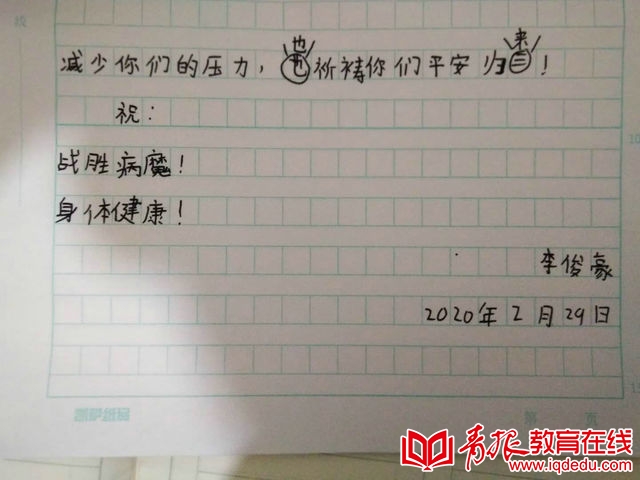 减少你们的压力，也祈祷你们平安归来！
祝：
战胜病魔！
身体健康！
李俊豪
2020年2月29日
凯萨纸品
第 页
青报教育在线
www.iqdedu.com